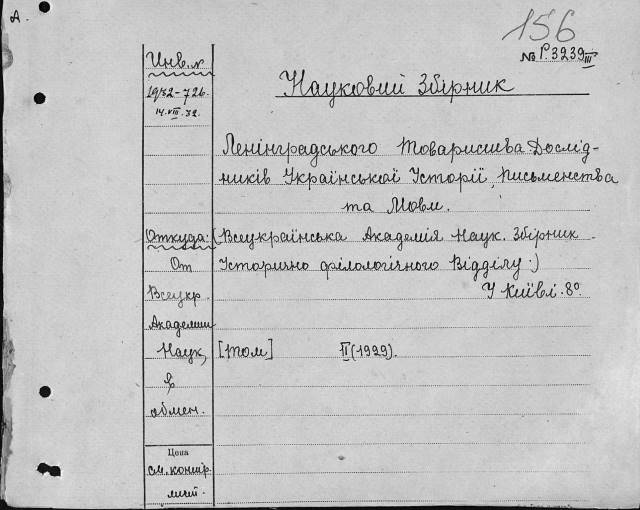 А.
156
№ Р.3239 III
Инв. №
1932-726.
14.VIII.32.
Науковий Збірник
Ленінградського Товариства Дослід-
ників Української Історії, Письменства
та Мови.
Откуда: (Всеукраїнська Академія Наук. Збірник
От Історично філологічного Відділу.)
Всеукр. У Київі. 8º.
Академии
Наук, [том] II (1929).
в
обмен.
Цена
см. контр.
лист.